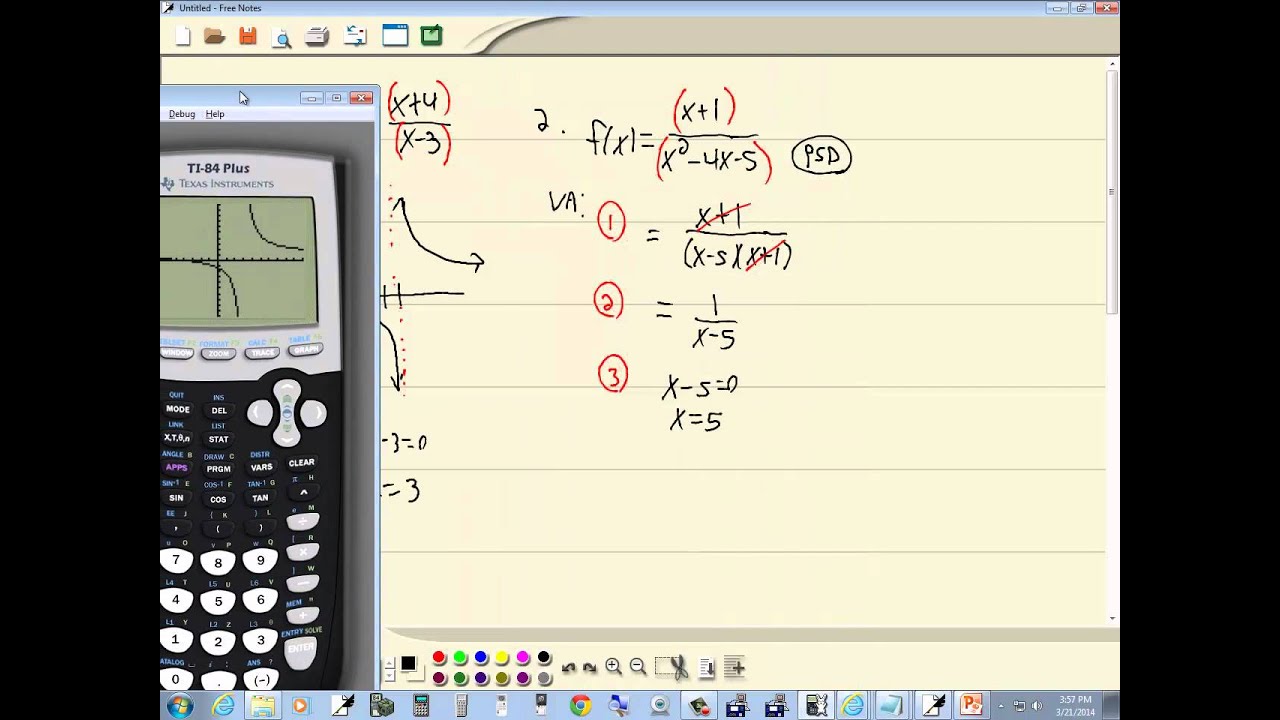 Untitled - Free Notes
Debug Help
TI-84 Plus
TEXAS INSTRUMENTS
(x+4)
(x-3)
2. f(x)= (x+1)
(x²-4x-5) PSD
VA: ① = x+1
(x-5)(x+1)
② = 1
x-5
③ x-5=0
x=5
-3=0
=3
WINDOW ZOOM TRACE GRAPH
QUIT INS
MODE DEL
LINK LIST
X,T,θ,n STAT
ANGLE B DRAW C DISTR
APPS PRGM VARS CLEAR
SIN⁻¹ E COS⁻¹ F TAN⁻¹ G π H
SIN COS TAN ^
EE J { K } L
, ( ) ÷
u O v P w Q [ R
7 8 9 ×
L4 T L5 U L6 V ] W
4 5 6 −
L1 Y L2 Z L3 θ MEM "
1 2 3 +
ENTRY SOLVE
ENTER
CATALOG i : ANS ?
0 . (-)
3:57 PM
3/21/2014